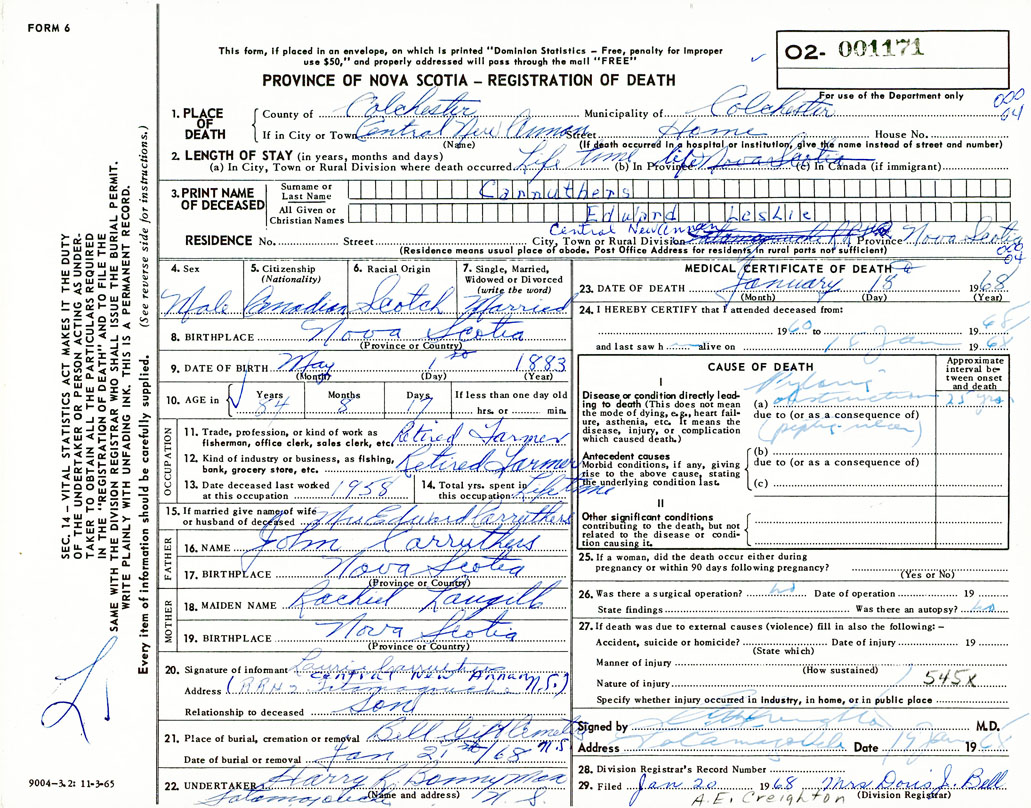 FORM 6
This form, if placed in an envelope, on which is printed "Dominion Statistics – Free, penalty for improper
use $50," and properly addressed will pass through the mail "FREE"
PROVINCE OF NOVA SCOTIA – REGISTRATION OF DEATH
O2- 001171
For use of the Department only
1. PLACE OF DEATH County of Colchester Municipality of Colchester
If in City or Town Central New Annan Street Home House No.
(Name) (If death occurred in a hospital or institution, give the name instead of street and number)
2. LENGTH OF STAY (in years, months and days)
(a) In City, Town or Rural Division where death occurred Life time (b) In Province life Nova Scotia (c) In Canada (if immigrant)
3. PRINT NAME OF DECEASED Surname or Last Name Carruthers
All Given or Christian Names Edward Leslie
RESIDENCE No. Street City, Town or Rural Division Central New Annan Province Nova Scotia
(Residence means usual place of abode. Post Office Address for residents in rural parts not sufficient)
4. Sex Male
5. Citizenship (Nationality) Canadian
6. Racial Origin Scotch
7. Single, Married, Widowed or Divorced (write the word) Married
8. BIRTHPLACE Nova Scotia
(Province or Country)
9. DATE OF BIRTH May 1st 1883
(Month) (Day) (Year)
10. AGE in Years 84 Months 8 Days 17 If less than one day old hrs. or min.
OCCUPATION
11. Trade, profession, or kind of work as fisherman, office clerk, sales clerk, etc. Retired Farmer
12. Kind of industry or business, as fishing, bank, grocery store, etc. Retired Farmer
13. Date deceased last worked at this occupation 1958
14. Total yrs. spent in this occupation Lifetime
15. If married give name of wife or husband of deceased Mrs Edward Carruthers
FATHER
16. NAME John Carruthers
17. BIRTHPLACE Nova Scotia
(Province or Country)
MOTHER
18. MAIDEN NAME Rachel Langill
19. BIRTHPLACE Nova Scotia
(Province or Country)
20. Signature of informant Carruthers
Address Central New Annan (RR No Tatamagouche N.S.)
Relationship to deceased Son
21. Place of burial, cremation or removal Bell N.S
Date of burial or removal Jan 21st /68
22. UNDERTAKER Harry R. Bonnyman
Tatamagouche N. S.
(Name and Address)
MEDICAL CERTIFICATE OF DEATH
23. DATE OF DEATH January 18 1968
(Month) (Day) (Year)
24. I HEREBY CERTIFY that I attended deceased from:
1960 to 1968
and last saw h alive on 18 Jan 1968
CAUSE OF DEATH
Approximate interval between onset and death
I
Disease or condition directly leading to death (This does not mean the mode of dying, e.g., heart failure, asthenia, etc. It means the disease, injury, or complication which caused death.)
(a) Pyloric obstruction 25 yrs
due to (or as a consequence of)
(peptic ulcer)
Antecedent causes
Morbid conditions, if any, giving rise to the above cause, stating the underlying condition last.
(b)
due to (or as a consequence of)
(c)
II
Other significant conditions
contributing to the death, but not related to the disease or condition causing it.
25. If a woman, did the death occur either during
pregnancy or within 90 days following pregnancy?
(Yes or No)
26. Was there a surgical operation? no Date of operation 19
State findings Was there an autopsy? no
27. If death was due to external causes (violence) fill in also the following: –
Accident, suicide or homicide? Date of injury 19
(State which)
Manner of injury
(How sustained)
Nature of injury 545X
Specify whether injury occurred in Industry, in home, or in public place
Signed by M.D.
Address Tatamagouche Date 19 Jan 1968
28. Division Registrar's Record Number
29. Filed Jan 20 1968 Mrs Doris J. Bell
A.E. Creighton (Division Registrar)
SEC. 14 – VITAL STATISTICS ACT MAKES IT THE DUTY
OF THE UNDERTAKER OR PERSON ACTING AS UNDER-
TAKER TO OBTAIN ALL THE PARTICULARS REQUIRED
IN THE "REGISTRATION OF DEATH" AND TO FILE THE
SAME WITH THE DIVISION REGISTRAR WHO SHALL ISSUE THE BURIAL PERMIT.
WRITE PLAINLY WITH UNFADING INK. THIS IS A PERMANENT RECORD.
Every item of information should be carefully supplied. (See reverse side for instructions.)
9004–3.2: 11-3-65